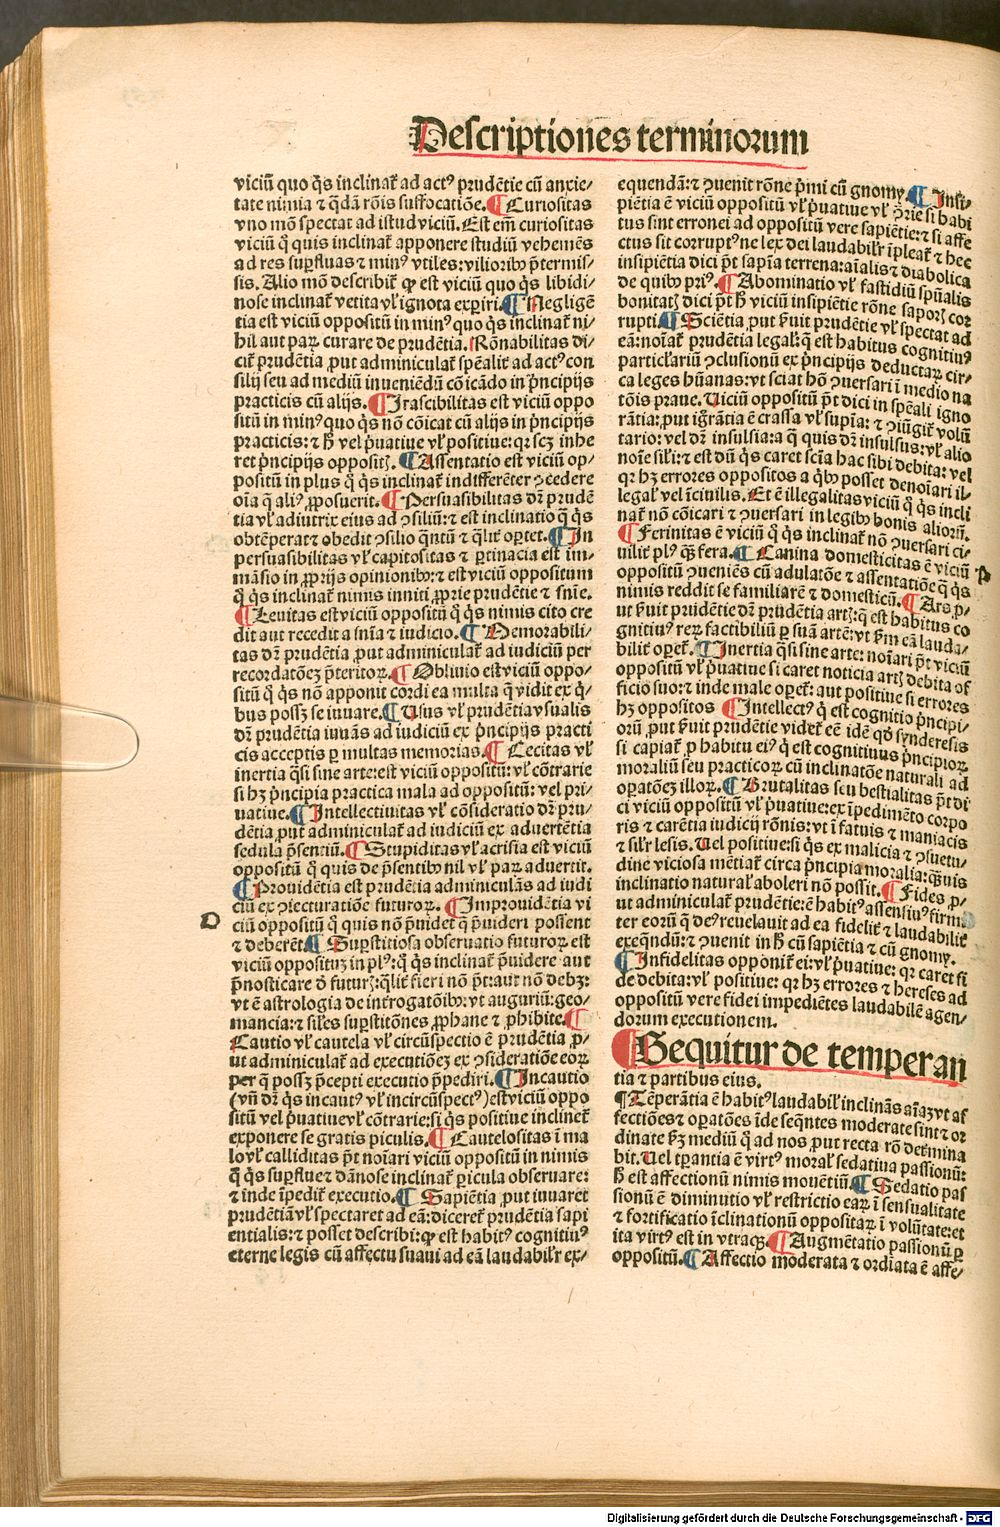 Descriptiones terminorum
viciũ quo q̃s inclinat᷑ ad actꝰ prudẽtie cũ anxie/
tate nimia ⁊ q̃dã rõis suffocatiõe. ¶ Curiositas
vno mõ spectat ad istud viciũ. Est em̃ curiositas
viciũ q̃ quis inclinat᷑ apponere studiũ vehemẽs
ad res suꝑfluas ⁊ minꝰ vtiles: vilioribꝰ p̃termis/
sis. Alio mõ describit᷑ ꝙ est viciũ quo q̃s libidi/
nose inclinat᷑ vetita vł ignota exꝑiri. ¶ Negligẽ
tia est viciũ oppositũ in minꝰ quo q̃s inclinat᷑ ni/
hil aut paꝝ curare de prudẽtia. Rõnabilitas di/
cit᷑ prudẽtia ꝓut adminiculat᷑ spẽalit᷑ ad actꝰ con
silij seu ad mediũ inueniẽdũ cõicãdo in p̃ncipijs
practicis cũ alijs. ¶ Irascibilitas est viciũ oppo
sitũ in minꝰ quo q̃s nõ cõicat cũ alijs in p̃ncipijs
practicis: ⁊ h̃ vel p̃uatiue vł positiue: qꝛ scꝫ inhe
ret p̃ncipijs oppositꝭ. ¶ Assentatio est viciũ op/
positũ in plus q̃ q̃s inclinat᷑ indifferẽter ꝯcedere
oĩa q̃ aliꝰ ꝓposuerit. ¶ Persuasibilitas dꝛ̃ prudẽ
tia vł adiutrix eius ad ꝯsiliũ: ⁊ est inclinatio q̃ q̃s
obtẽperat ⁊ obedit ꝯsilio q̃ntũ ⁊ q̃lit᷑ oꝑtet. ¶ In
persuasibilitas vł capitositas ⁊ ꝑtinacia est im/
mãsio in ꝓprijs opinionibꝰ: ⁊ est viciũ oppositum
q̃ q̃s inclinat᷑ nimis inniti ꝓprie prudẽtie ⁊ sñie.
¶ Leuitas est viciũ oppositũ q̃ q̃s nimis cito cre
dit aut recedit a sñia ⁊ iudicio. ¶ Memorabili/
tas dꝛ̃ prudẽtia ꝓut adminiculat᷑ ad iudiciũ per
recordatõeꝫ p̃teritoꝝ. ¶ Obliuio est viciũ oppo/
sitũ q̃ q̃s nõ apponit cordi ea multa q̃ vidit ex q̃/
bus possꝫ se iuuare. ¶ Usus vł prudẽtia vsualis
dꝛ̃ prudẽtia iuuãs ad iudiciũ ex p̃ncipijs practi
cis acceptis ꝑ multas memorias. ¶ Cecitas vł
inertia q̃si sine arte: est viciũ oppositũ: vł cõtrarie
si hꝫ p̃ncipia practica mala ad oppositũ: vel pri/
uatiue. ¶ Intellectiuitas vł cõsideratio dꝛ̃ pru/
dẽtia ꝓut adminiculat᷑ ad iudiciũ ex aduertẽtia
sedula p̃sentiũ. ¶ Stupiditas vł acrisia est viciũ
oppositũ q̃ quis de p̃sentibꝰ nil vł paꝝ aduertit.
¶ Prouidẽtia est prudẽtia adminiculãs ad iudi
ciũ ex ꝯiecturatiõe futuroꝝ. ¶ Improuidẽtia vi
D
ciũ oppositũ q̃ quis nõ p̃uidet q̃ p̃uideri possent
⁊ deberẽt. ¶ Suꝑstitiosa obseruatio futuroꝝ est
viciũ oppositꝫ in plꝰ: q̃ q̃s inclinat᷑ p̃uidere aut
p̃nosticare ð futurꝭ: q̃lit᷑ fieri nõ p̃t: aut nõ debꝫ:
vt ẽ astrologia de introgatõibꝰ: vt auguriũ: geo/
mancia: ⁊ siłes suꝑstitõnes ꝓphane ⁊ ꝓhibite. ¶
Cautio vł cautela vł circũspectio ẽ prudẽtia ꝓ/
ut adminiculat᷑ ad executiõeꝫ ex ꝯsideratiõe eoꝝ
per q̃ possꝫ p̃cepti executio p̃pediri. ¶ Incautio
(vñ dꝛ̃ q̃s incautꝰ vł incircũspectꝰ) est viciũ oppo
sitũ vel p̃uatiue vł cõtrarie: si q̃s positiue inclinet᷑
exponere se gratis ꝑiculis. ¶ Cautelositas ĩ ma
lo vł calliditas p̃t noĩari viciũ oppositũ in nimis
q̃ q̃s suꝑflue ⁊ dãnose inclinat᷑ ꝑicula obseruare:
⁊ inde ĩpedit᷑ executio. ¶ Sapiẽtia ꝓut iuuaret
prudẽtiã vł spectaret ad eã: diceret᷑ prudẽtia sapi
entialis: ⁊ posset describi: ꝙ est habitꝰ cognitiuꝰ
eterne legis cũ affectu suaui ad eã laudabilr̃ ex/
equendã: ⁊ ꝯuenit rõne p̃mi cũ gnomy. ¶ Insi/
piẽtia ẽ viciũ oppositũ vł p̃uatiue vł ꝯ̃rie si habi
tus sint erronei ad oppositũ vere sapiẽtie: ⁊ si affe
ctus sit corruptꝰ ne lex dei laudabilr̃ ĩpleat᷑ ⁊ hec
insipiẽtia dici p̃t sapĩa terrena: aĩalis ⁊ diabolica
de quibꝰ priꝰ. ¶ Abominatio vł fastidiũ spũalis
bonitatꝭ dici p̃t h̃ viciũ insipiẽtie rõne saporꝭ cor
rupti. ¶ Sciẽtia ꝓut fuit prudẽtie vł spectat ad
eã: noĩat᷑ prudẽtia legał: q̃ est habitus cognitiuꝰ
particlariũ ꝯclusionũ ex p̃ncipijs deductaꝝ cir/
ca leges hũanas: vt sciat hõ ꝯuersari ĩ medio na
tõis praue. Uiciũ oppositũ p̃t dici in spẽali igno
rãtia: ꝓut igr̃ãtia ẽ crassa vł supĩa: ⁊ ꝯiũgit᷑ volũ
tario: vel dꝛ̃ insulsia: a q̃ quis dꝛ̃ insulsus: vł alio
noĩe siłi: ⁊ est dũ q̃s caret scĩa hac sibi debita: vel
qꝛ hꝫ errores oppositos a q̃bꝰ posset denoĩari il/
legał vel ĩciuilis. Et ẽ illegalitas viciũ q̃ q̃s incli
nat᷑ nõ cõicari ⁊ ꝯuersari in legibꝰ bonis alioꝝ.
¶ Ferinitas ẽ viciũ q̃ q̃s inclinat᷑ nõ ꝯuersari ci/
uilit᷑ plꝰ q̃ꝫ fera. ¶ Canina domesticitas ẽ viciũ
oppositũ ꝯueniẽs cũ adulatõe ⁊ assentatiõe q̃ q̃s
nimis reddit se familiarẽ ⁊ domesticũ. ¶ Ars ꝓ/
ut fuit prudẽtie dꝛ̃ prudẽtia artꝭ: q̃ est habitus co
gnitiuꝰ reꝝ factibiliũ ꝑ suã artẽ: vt ẜm eã lauda/
bilit᷑ oꝑet᷑. ¶ Inertia q̃si sine arte: noĩari p̃t viciũ
oppositũ vł p̃uatiue si caret noticia artꝭ debita of
ficio suo: ⁊ inde male oꝑet᷑: aut positiue si errores
hꝫ oppositos ¶ Intellectꝰ q̃ est cognitio p̃ncipi/
orũ ꝓut fuit prudẽtie videt᷑ eẽ idẽ qð synderesis
si capiat᷑ ꝓ habitu eiꝰ q̃ est cognitiuus p̃ncipioꝝ
moraliũ seu practicoꝝ cũ inclinatõe naturali ad
oꝑatõeꝫ illoꝝ. ¶ Brutalitas seu bestialitas p̃t di
ci viciũ oppositũ vł p̃uatiue: ex ĩpedimẽto corpo
ris ⁊ carẽtia iudicij rõnis: vt ĩ fatuis ⁊ maniacis
⁊ silr̃ lesis. Uel positiue: si q̃s ex malicia ⁊ ꝯsuetu/
dine viciosa mẽtiat᷑ circa p̃ncipia moralia: q̃ꝫuis
inclinatio naturał aboleri nõ possit. ¶ Fides ꝓ/
ut adminiculat᷑ prudẽtie: ẽ habitꝰ assensiuꝰ firmꝰ
ter eorũ q̃ deꝰ reuelauit ad ea fidelit᷑ ⁊ laudabilit᷑
exeq̃ndũ: ⁊ ꝯuenit in h̃ cũ sapiẽtia ⁊ cũ gnomy.
¶ Infidelitas opponit᷑ ei: vł p̃uatiue: qꝛ caret fi
de debita: vł positiue: qꝛ hꝫ errores ⁊ hereses ad
oppositũ vere fidei impediẽtes laudabilẽ agen/
dorum executionem.
¶ Sequitur de temperan
tia ⁊ partibus eius.
¶ Tẽperãtia ẽ habitꝰ laudabilr̃ inclinãs aĩaꝫ vt af
fectiões ⁊ oꝑatões ĩde seq̃ntes moderate sint ⁊ or
dinate ẜꝫ mediũ q̃ ad nos ꝓut recta rõ determina
bit. Uel tꝑantia ẽ virtꝰ morał sedatiua passionũ:
h̃ est affectionũ nimis mouẽtiũ. ¶ Sedatio pas
sionũ ẽ diminutio vł restrictio eaꝝ ĩ sensualitate
⁊ fortificatio ĩclinationũ oppositaꝝ ĩ volũtate: et
ita virtꝰ est in vtraqꝫ. ¶ Augmẽtatio passionũ ꝑ
oppositũ. ¶ Affectio moderata ⁊ ordiata ẽ affe/
Digitalisierung gefördert durch die Deutsche Forschungsgemeinschaft - DFG